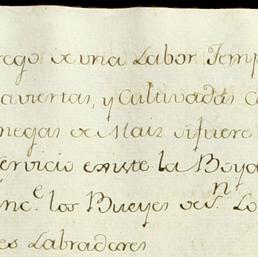 rego de una Labor Temp
aviertas, y Cultivadas C
negas de Maiz si fuere
ervicio existe la Boya
nc.e los Bueyes de S.n Lo
es Labradores